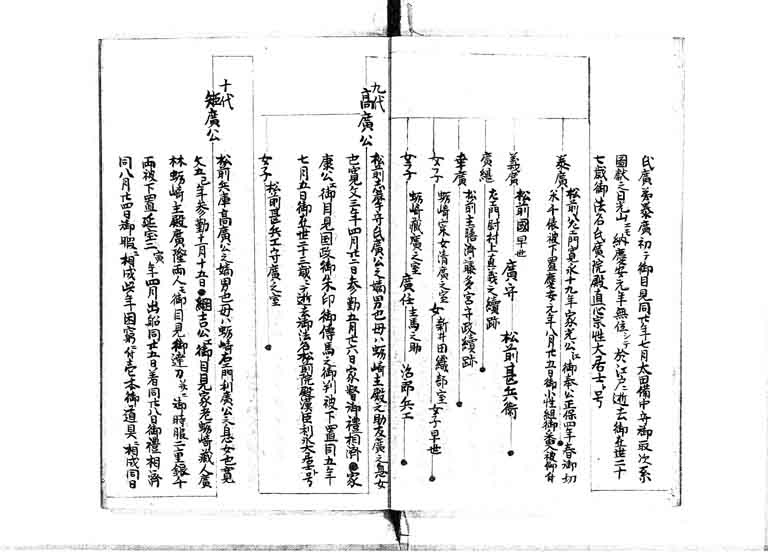 氏廣弟泰廣初テ御目見同廿年七月太田備中守御取次系
圖献之日光山ニ被納慶安元年無位ニシテ於江戸逝去御在世二十
七歳御法名氏廣院殿直心宗性大居士ト号
泰廣 松前八左エ門寛永十九年家光公江御奉公正保四年春御切
米千俵被下置慶安元年八月廿五日御小性組御番入被仰付
義廣 松前國早世 廣守 松前甚兵衛
廣継 左エ門村上直義之續跡
幸廣 松前主膳濟藤多宮守政續跡
女子 蛎崎采女清廣之室 女 新井田織部室 女子早世
女子 蛎崎藏廣之室 廣任 主馬之助 治郎兵工
九代
高廣公
松前志摩守氏廣公之嫡男也母ハ蛎崎主殿之助友廣之息女
也寛文三年四月廿二日参勤五月廿六日家督御禮相濟家
康公江御目見国政御朱印御傳馬之御判被下置同五年
七月五日御在世二十三歳ニテ逝去御法名松前院殿漢臣利永大居士ト号
女子 松前甚兵工守廣之室
十代
矩廣公
松前兵庫高廣公之嫡男也母ハ蛎崎右エ門利廣公之息女也寛
文五巳年参勤十一月十五日綱吉公江御目見家老蛎崎藏人廣
林蛎崎主殿廣隆両人ニ御目見御達刀并ニ御時服二重銀千
両被下置延宝二寅年四月出船同廿五日着同廿八日御禮相濟
同八月廿四日御暇ニ相成此年困窮ニ付壱本御道具ニ相成同日